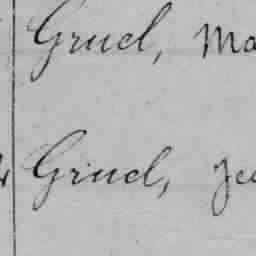 Gruel, Ma
Gruel, Je